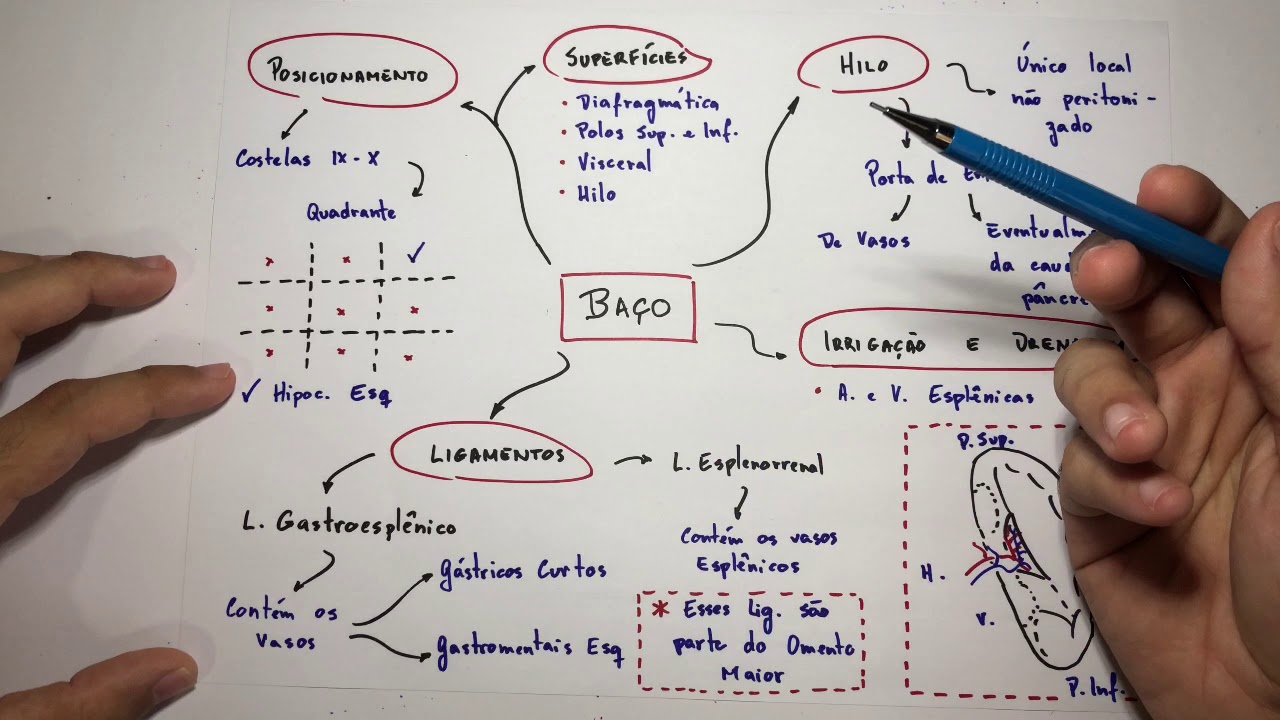 POSICIONAMENTO
Costelas IX-X
Quadrante
✓ Hipoc. Esq
SUPERFÍCIES
• Diafragmática
• Polos Sup. e Inf.
• Visceral
• Hilo
HILO
Único local
não peritoni-
zado
Porta de
De Vasos
da
BAÇO
IRRIGAÇÃO E
• A. e V. Esplênicas
P. Sup.
H.
V.
P. Inf.
LIGAMENTOS
L. Gastroesplênico
Contém os
vasos
Gástricos Curtos
Gastromentais Esq
L. Esplenorrenal
Contém os vasos
Esplênicos
* Esses Lig. são
parte do Omento
Maior